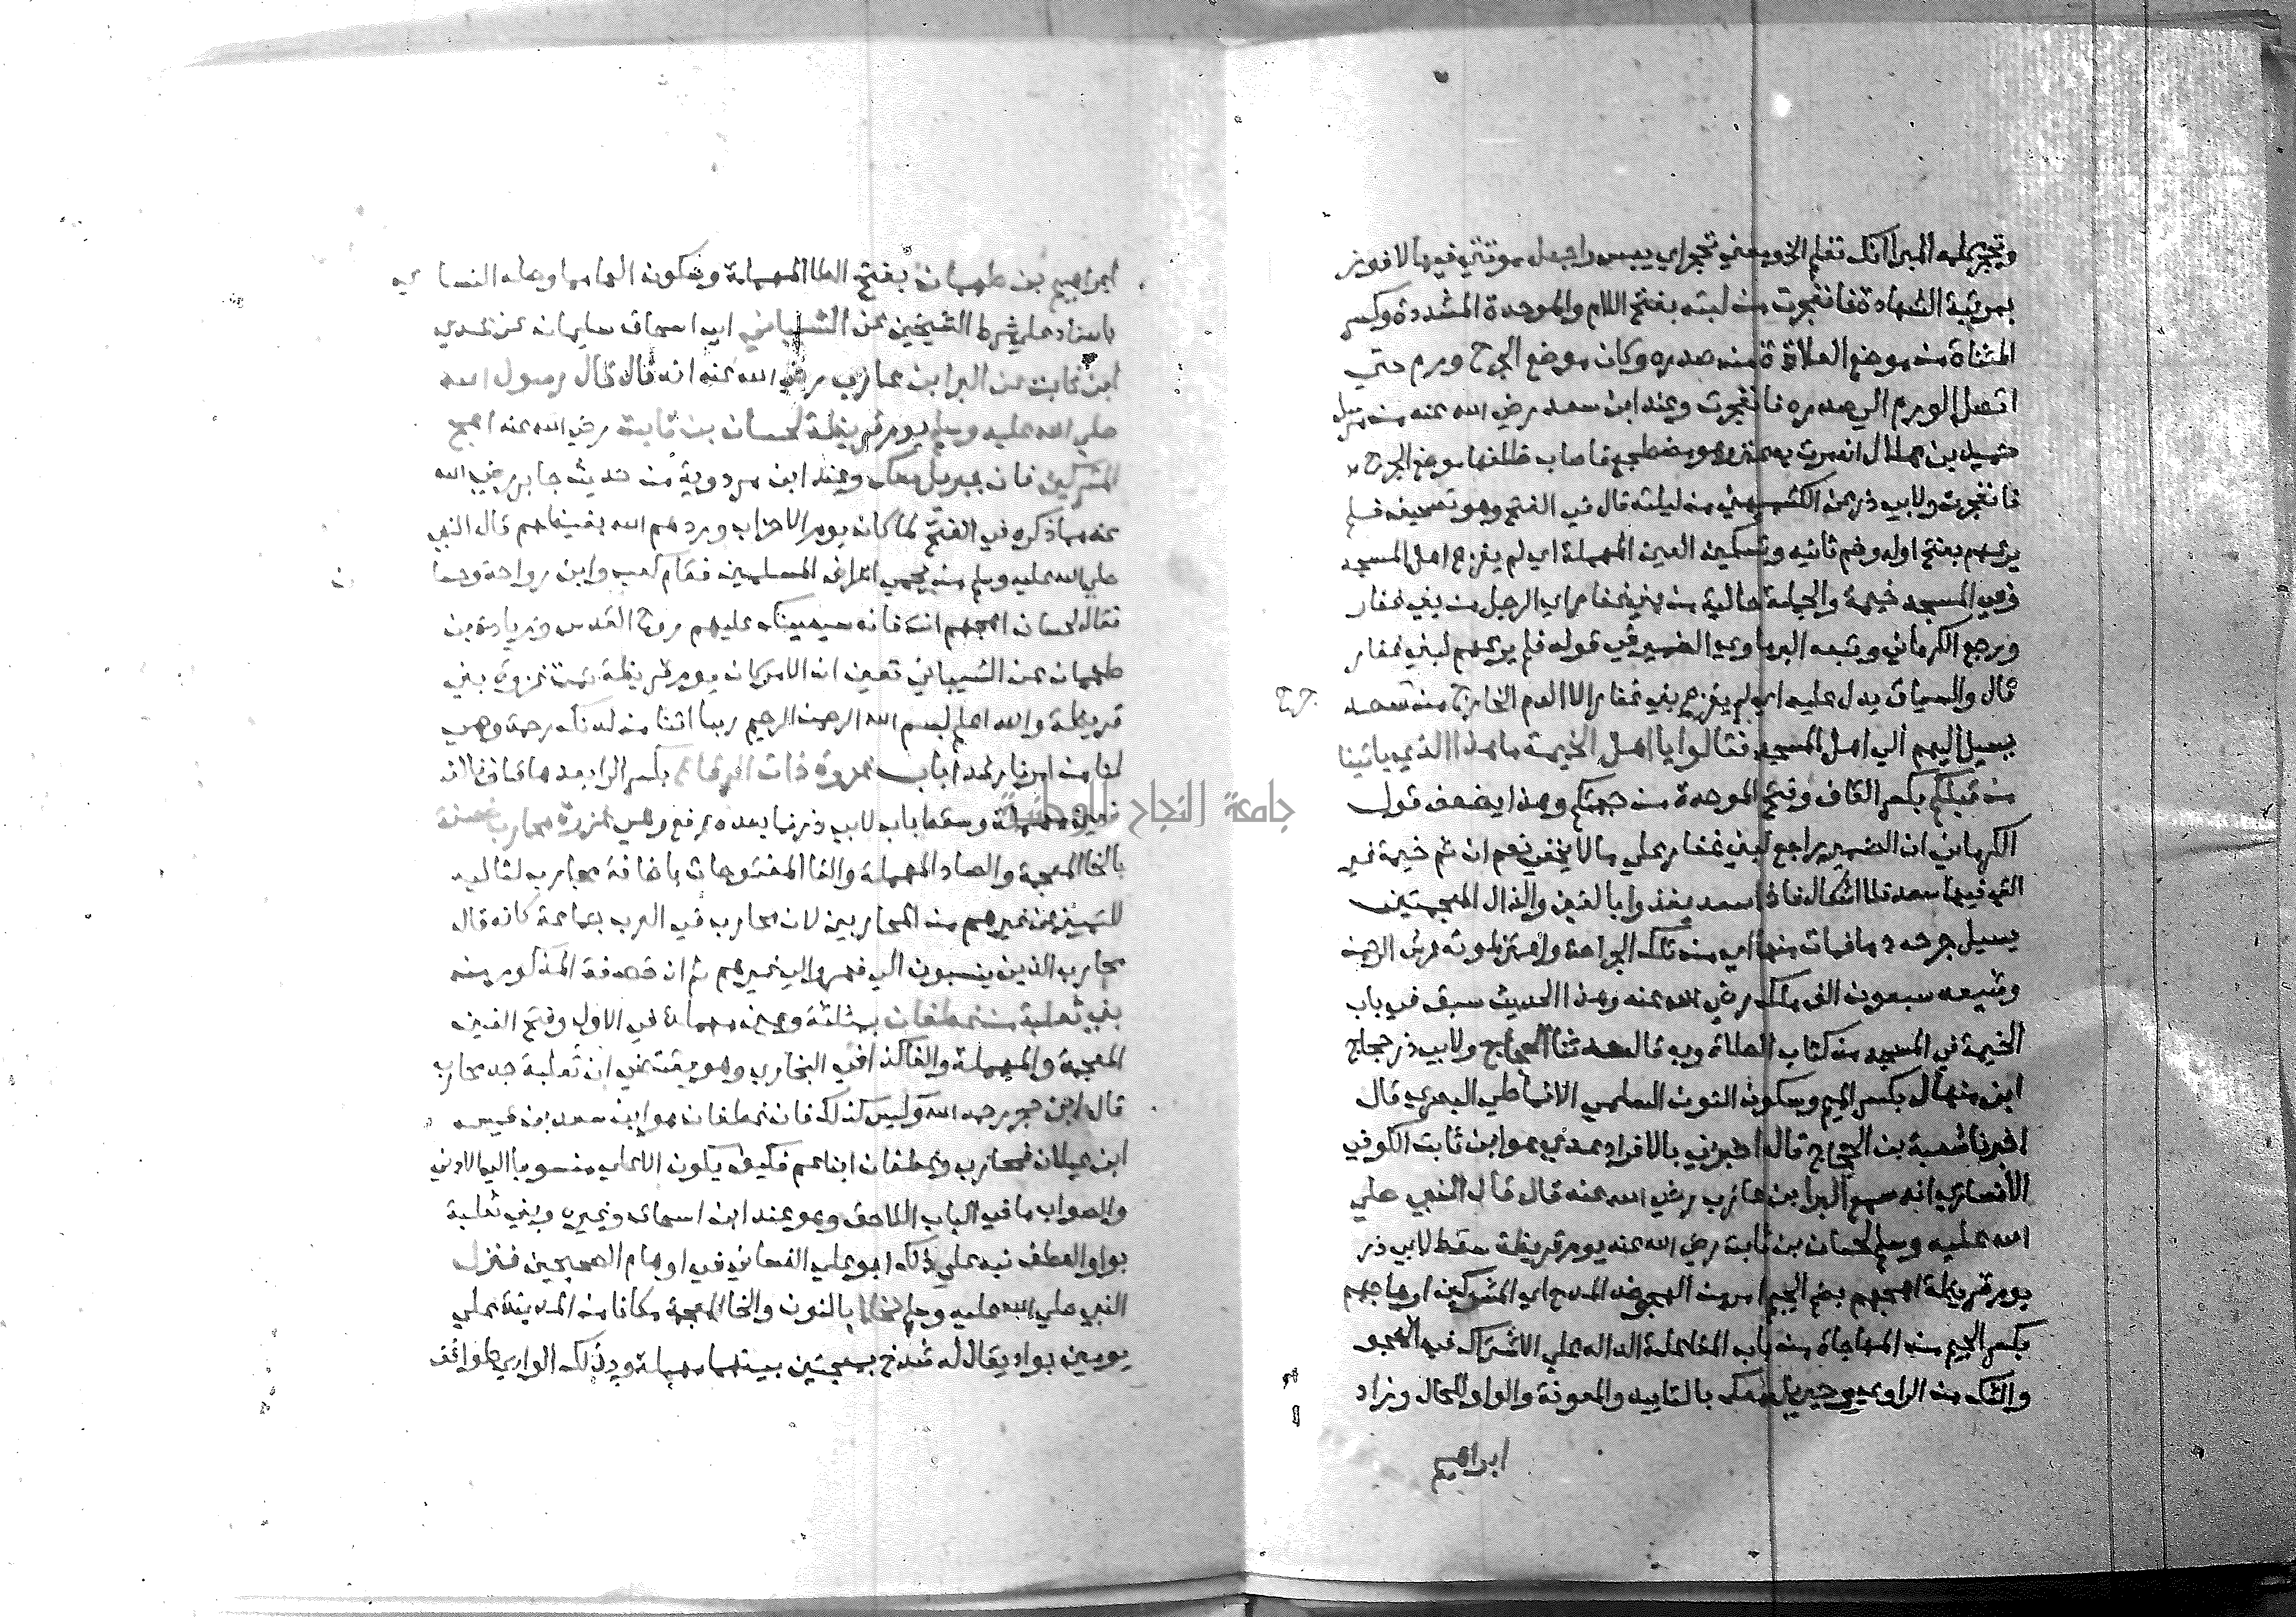 وتجر كلمه المبرا انك تعلم الاخ ويعني تجر اي يبس واجعل موتتي فيها لافوز
بمرتبة الشهادة فانفجرت من لبته بفتح اللام والموحدة المشددة وكسر
المثناة من موضع القلادة من صدره وكان موضع الجرح ورم حتي
اتصل الورم الي صدره فانفجرت وعند ابن سعد رضي الله عنه من مرسل
حميد بن هلال انه مرت به عنز وهو مضطجع فاصاب ظلفها موضع الجرح
فانفجرت ولابي ذر عن الكشميهني من ليلته قال في الفتح وهو تصحيف فلم
يرعهم بفتح اوله وضم ثانيه وتسكين العين المهملة اي لم يفزع اهل المسجد
وفي المسجد خيمة والجملة حالية من بني غفار اي الرجل من بني غفار
ورجع الكرماني وتبعه البرماوي الضمير في قوله فلم يرعهم لبني غفار
قال والسياق يدل عليه اي لم يفزع بني غفار الا الدم الخارج من سعد
يسيل اليهم الي اهل المسجد فقالوا يا اهل الخيمة ما هذا الذي ياتينا
من قبلكم بكسر القاف وفتح الموحدة من جهتكم وهذا يضعف قول
الكرماني ان الضمير راجع لبني غفار علي ما لا يخفي نعم ان ثم خيمة غير
التي فيها سعد فلا اشكال فاذا سعد يغذوا بالغين والذال المعجمتين
يسيل جرحه دما فمات منها اي من تلك الجراحة واهتز لموته عرش الرحمن
وشيعه سبعون الف ملك رضي الله عنه وهذا الحديث سبق في باب
الخيمة في المسجد من كتاب الصلاة وبه قال حدثنا الحجاج ولابي ذر حجاج
ابن منهال بكسر الميم وسكون النون السلمي الانماطي البصري قال
اخبرنا شعبة بن الحجاج قال اخبرني بالافراد عدي هو ابن ثابت الكوفي
الانصاري انه سمع البرا بن عازب رضي الله عنه قال قال النبي صلي
الله عليه وسلم لحسان بن ثابت رضي الله عنه يوم قريظة سقط لابي ذر
يوم قريظة اهجهم بضم الجيم امر من الهجو ضد المدح اي المشركين او هاجهم
بكسر الجيم من المهاجاة من باب المفاعلة الدالة علي الاشتراك في الهجو
والشك من الراوي وجبريل معك بالتاييد والمعونة والواو للحال وزاد
ابراهيم
ابراهيم بن طهمان بفتح الطا المهملة وسكون الها مما وصله النساي
باسناد علي شرط الشيخين عن الشيباني ابي اسحاق سليمان عن عدي
ابن ثابت عن البرا بن عازب رضي الله عنه انه قال قال رسول الله
صلي الله عليه وسلم يوم قريظة لحسان بن ثابت رضي الله عنه اهج
المشركين فان جبريل معك وعند ابن مردوية من حديث جابر رضي الله
عنه مما ذكره في الفتح لما كان يوم الاحزاب وردهم الله بغيظهم قال النبي
صلي الله عليه وسلم من يحمي اعراض المسلمين فقام كعب وابن رواحة وحسان
فقال لحسان اهجهم انت فانه سيعينك عليهم روح القدس وزيادة بن
طهمان عن الشيباني تعين ان الامر كان يوم قريظة تمت غزوة بني
قريظة والله اعلم بسم الله الرحمن الرحيم ربنا اتنا من لدنك رحمة وهيي
لنا من امرنا رشدا باب غزوة ذات الرقاع بكسر الرا بعدها قاف فالف
فعين مهملة وسقط باب لابي ذر فما بعده رفع وهي غزوة محارب خصفة
بالخا المعجمة والصاد المهملة والفا المفتوحات باضافة محارب لتاليه
للتمييز عن غيرهم من المحاربين لان محارب في العرب جماعة كانه قال
محارب الذين ينسبون الي خصفة لا الي غيرهم ثم ان خصفة المذكور من
بني ثعلبة من غطفان بمثلثة وعين مهملة في الاول وفتح الغين
المعجمة والمهملة والفا كذا في البخاري وهو يقتضي ان ثعلبة جد محارب
قال ابن حجر رحمه الله وليس كذلك فان غطفان هو ابن سعد بن قيس
ابن عيلان فمحارب وغطفان ابنا عم فكيف يكون الاعلي منسوبا الي الادني
والصواب ما في الباب اللاحق وهو عند ابن اسحاق وغيره وبني ثعلبة
بواو العطف نبه علي ذلك ابو علي الغساني في اوهام الصحيحين فنزل
النبي صلي الله عليه وسلم نخلا بالنون والخا المعجمة مكانا من المدينة علي
يومين بواد يقال له شدخ بمعجمتين بينهما مهملة وبذلك الوادي طوائف
جامعة النجاح الوطنية